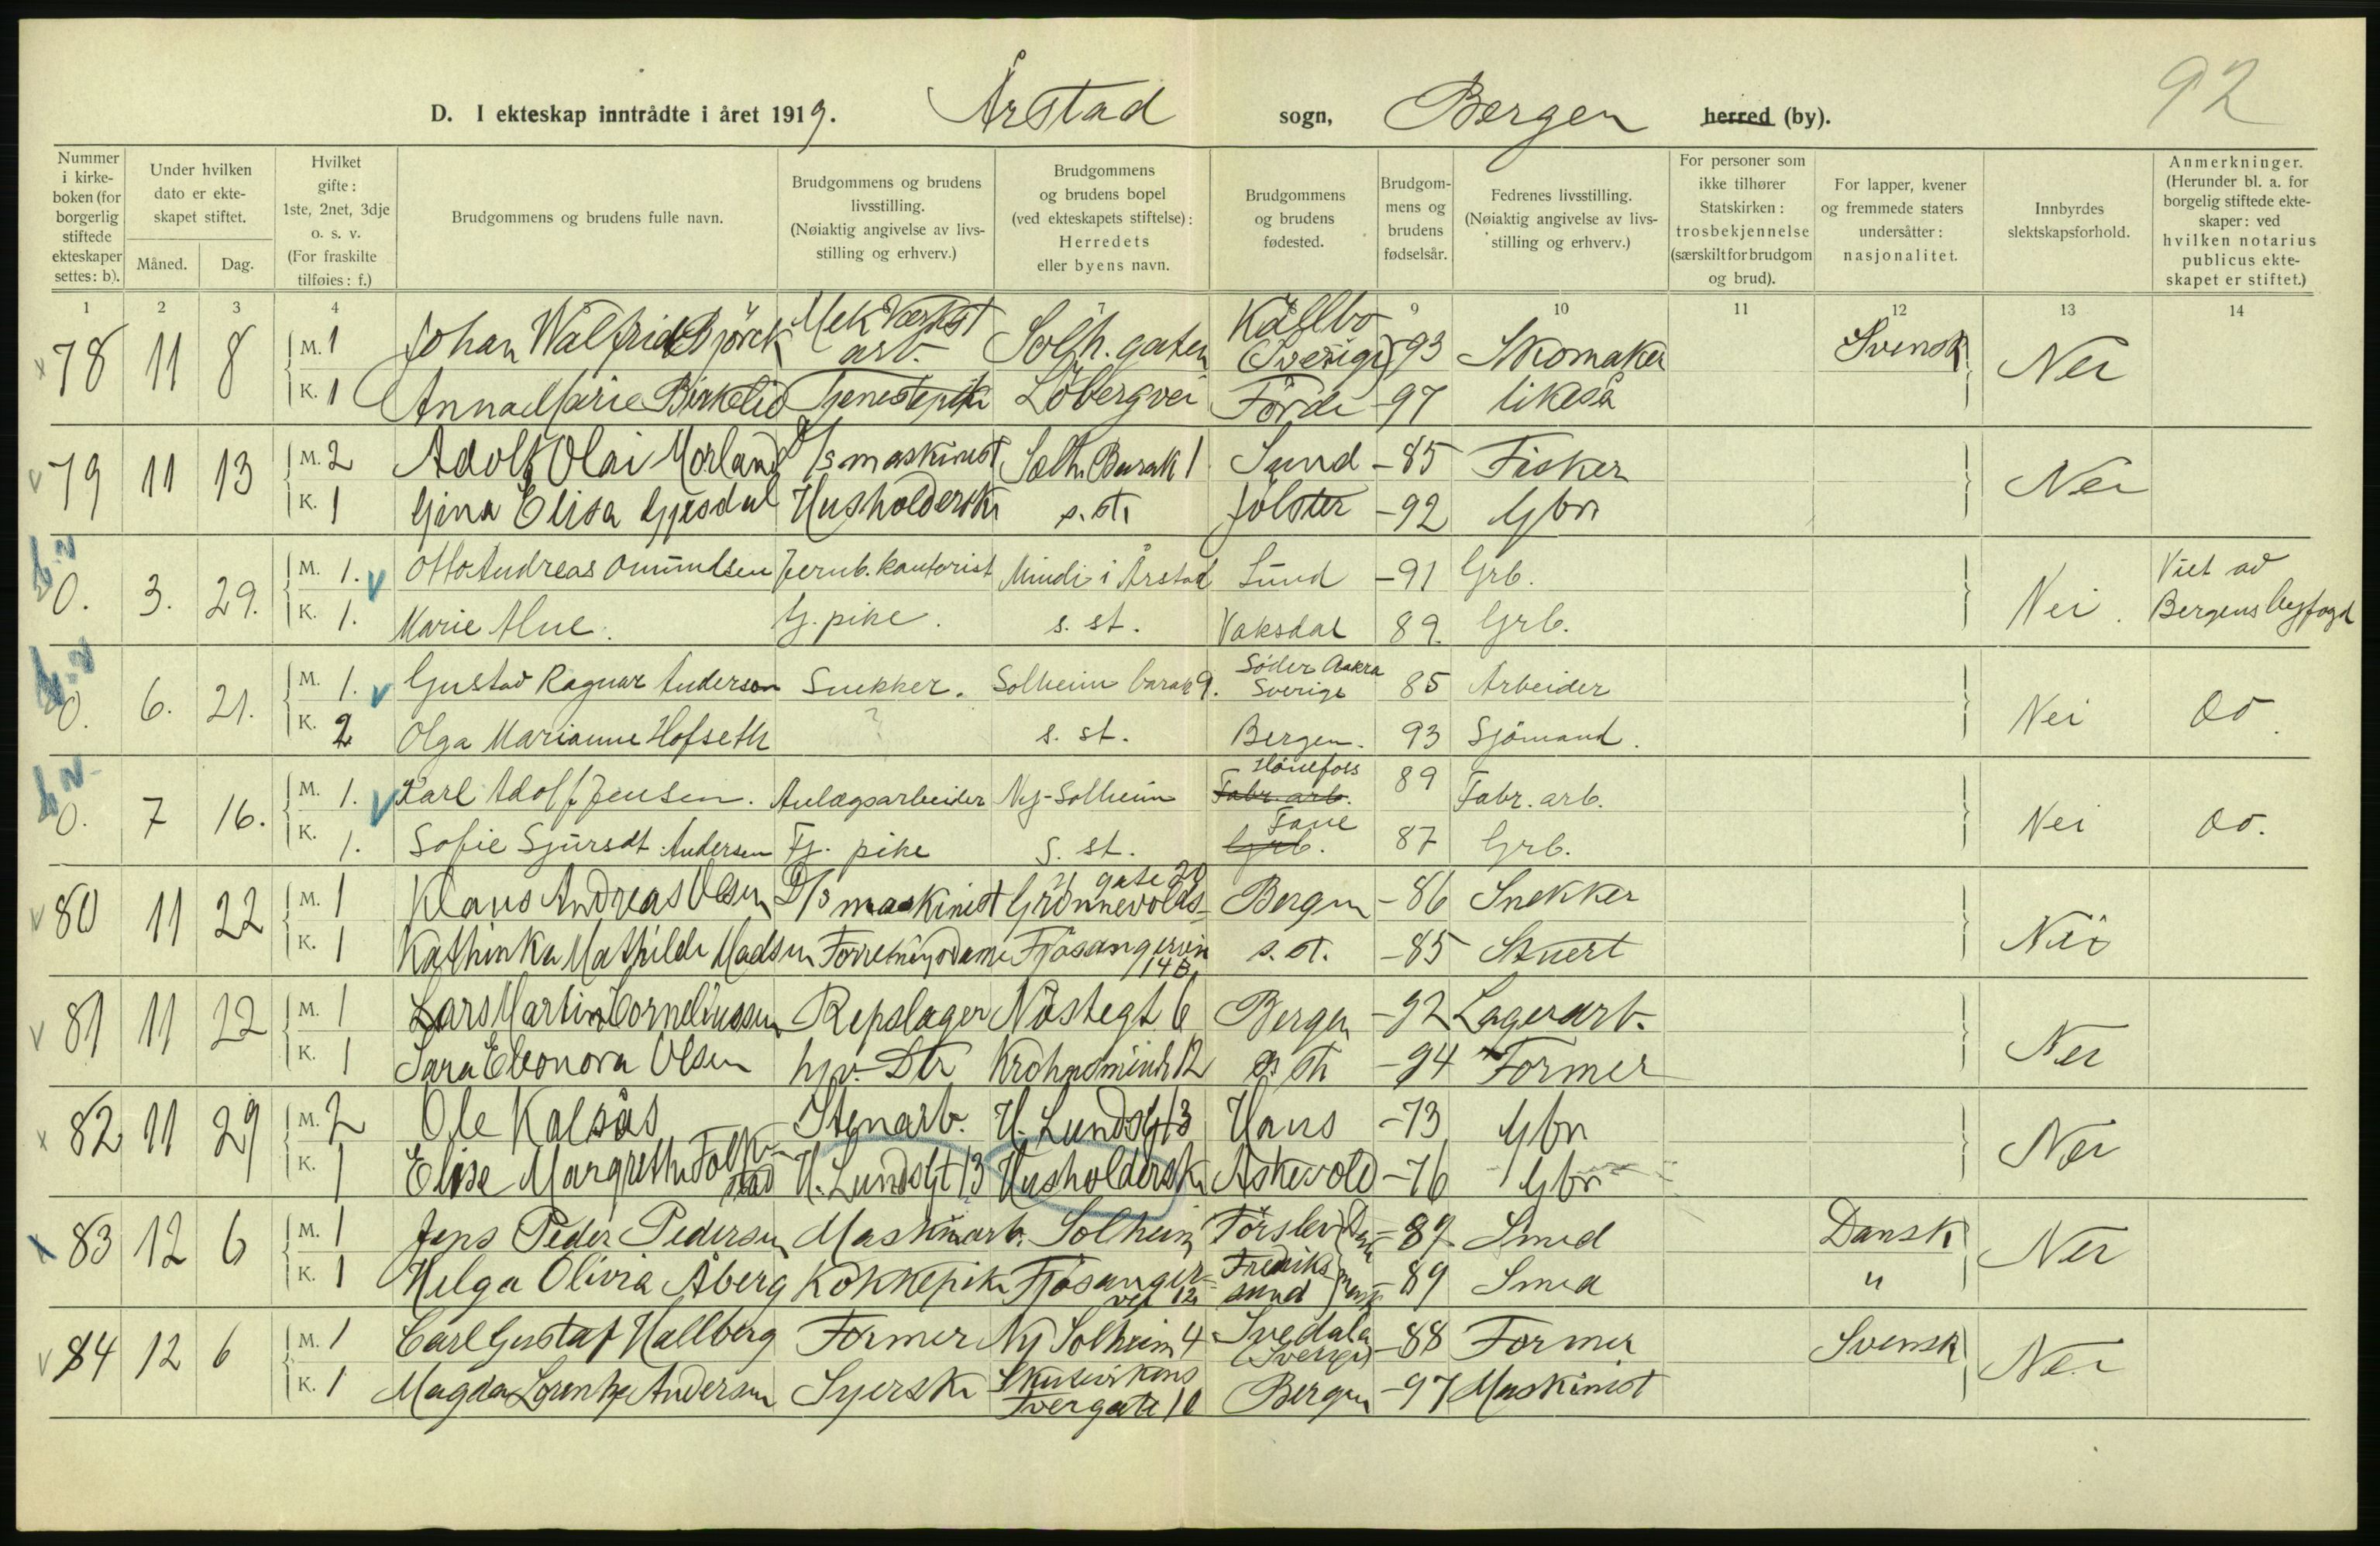 92
D. I ekteskap inntrådte i året 1919. Årstad sogn, Bergen herred (by).
Nummer i kirkeboken (for borgerlig stiftede ekteskaper settes: b). | Under hvilken dato er ekteskapet stiftet. Måned. Dag. | Hvilket gifte: 1ste, 2net, 3dje o. s. v. (For fraskilte tilføies: f.) | Brudgommens og brudens fulle navn. | Brudgommens og brudens livsstilling. (Nøiaktig angivelse av livsstilling og erhverv.) | Brudgommens og brudens bopel (ved ekteskapets stiftelse): Herredets eller byens navn. | Brudgommens og brudens fødested. | Brudgommens og brudens fødselsår. | Fedrenes livsstilling. (Nøiaktig angivelse av livsstilling og erhverv.) | For personer som ikke tilhører Statskirken: trosbekjennelse (særskilt for brudgom og brud). | For lapper, kvener og fremmede staters undersåtter: nasjonalitet. | Innbyrdes slektskapsforhold. | Anmerkninger. (Herunder bl. a. for borgelig stiftede ekteskaper: ved hvilken notarius publicus ekteskapet er stiftet.)
1 2 3 4 7 9 10 11 12 13 14
x 78 11 8 M. 1 Johan Walfrid Björck Mek Værkst arb. Solh. gaten Källbo (Sverige) 93 Skomaker Svensk Nei
K. 1 Anna Marie Birkelid Tjenestepike Löbergvei Förde -97 likeså
v 79 11 13 M. 2 Adolf Olai Morland D/s maskinist Solh. Barak 1 Sund -85 Fisker Nei
K. 1 Gina Elisa Gjesdal Husholderske s. st. Jölster -92 Gbr
0. 3. 29. M. 1. v Otto Andreas Omundsen Jernb. kontorist Minde i Årstad Sund -91 Grb. Nei. Viet av Bergens Byfogd
K. 1. Marie Alue. Tj. pike. s. st. Vaksdal 89. Grb.
0. 6. 21. M. 1. v Gustav Ragnar Anderson Snekker. Solheim barak 9. Söder Aakra Sverige 85 Arbeider Nei Do.
K. 2 Olga Marianne Hofseth ? s. st. Bergen. 93 Sjömand.
0. 7 16. M. 1. v Karl Adolf Jensen. Anlægsarbeider Ny-Solheim Hönefoss Fabr. arb. 89 Fabr. arb. Nei Do.
K. 1. Sofie Sjursdt. Andersen Tj. pike S. st. Fane Grb. 87 Grb.
v 80 11 22 M. 1 Klaus Andreas Olsen D/s maskinist Grönnevolds- gate 20 Bergen -86 Snekker Nei
K. 1 Kathinka Mathilde Madsen Forretningsdame Fjösangerveien 14 B. s. st. -85 Stuert
v 81 11 22 M. 1 Lars Martin Corneliussen Repslager Nöstegt 6 Bergen -92 Lagerarb. Nei
K. 1 Sara Eleonora Olsen hjv. Dtr Krohnsminde 12 s. st. -94 Former
x 82 11 29 M. 2 Ole Kalsås Stenarb. H. Lundsgt 13 Haus -73 Gbr Nei
K. 1 Elise Margrethe Folkestad H. Lundsgt 13 Husholderske Askevold -76 Gbr
x 83 12 6 M. 1 Jens Peder Pedersen Maskinarb. Solheim Förslev Dan- 87 Smed Dansk Nei
K. 1 Helga Olivia Åberg Kokkepike Fjösangervei 12 Frederikssund 89 Smed "
v 84 12 6 M. 1 Carl Gustaf Hallberg Former Ny Solheim 4 Svedala (Sverige) -88 Former Svensk Nei
K. 1 Magda Lorentze Andersen Syerske Skutevikens Tvergate 10 Bergen -97 Maskinist